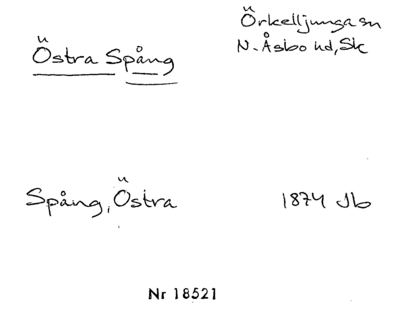 Östra Spång
Örkelljunga sn
N. Åsbo hd, Sk
Spång, Östra
1874 Jb
Nr 18521